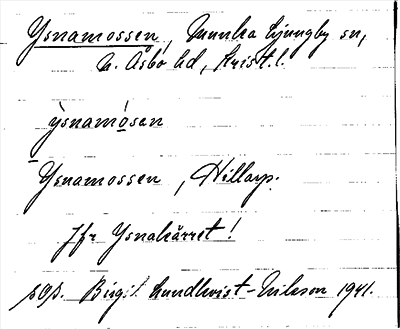 Ysnamossen, Munka Ljungby sn,
N. Åsbo hd, Krist. l.
ỳsnamo̲sen
Ysnamossen, Hillarp.
Jfr Ysnakärret!
sop. Birgit Lundkvist-Nilsson 1941.